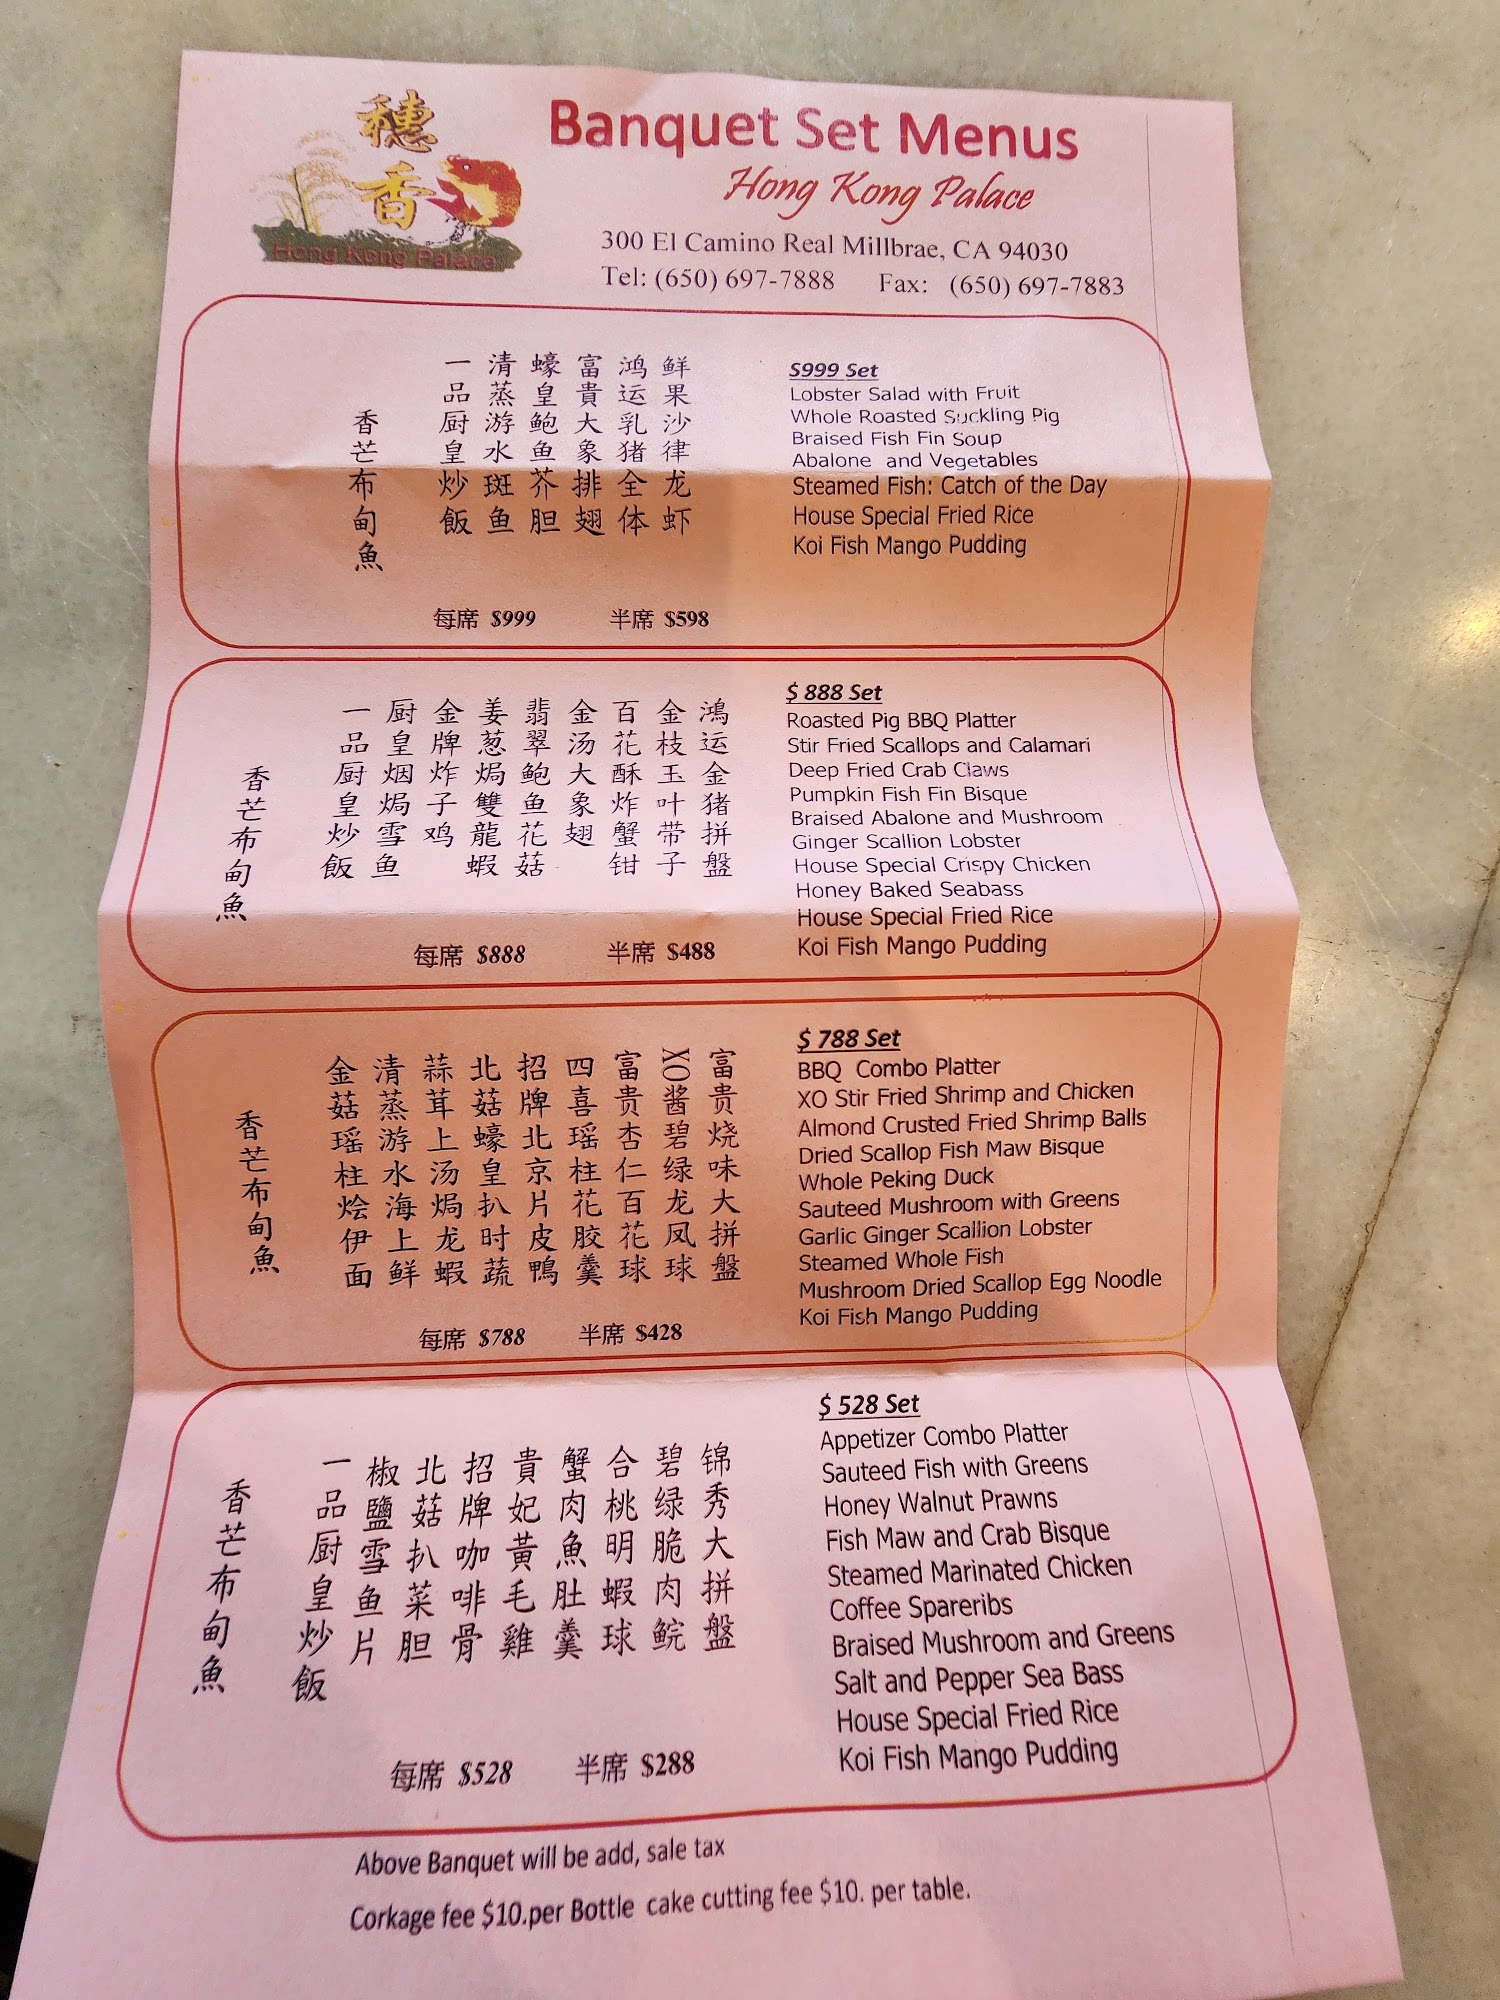 穗香
Hong Kong Palace
Banquet Set Menus
Hong Kong Palace
300 El Camino Real Millbrae, CA 94030
Tel: (650) 697-7888 Fax: (650) 697-7883
鲜果沙律龙虾
鸿运乳猪全体
富貴大象排翅
蠔皇鲍鱼芥胆
清蒸游水斑鱼
一品厨皇炒飯
香芒布甸魚
每席 $999 半席 $598
S999 Set
Lobster Salad with Fruit
Whole Roasted Suckling Pig
Braised Fish Fin Soup
Abalone and Vegetables
Steamed Fish: Catch of the Day
House Special Fried Rice
Koi Fish Mango Pudding
鴻运金猪拼盤
金枝玉叶带子
百花酥炸蟹钳
金汤大象翅
翡翠鲍鱼花菇
姜葱焗雙龍蝦
金牌炸子鸡
厨皇烟焗雪鱼
一品厨皇炒飯
香芒布甸魚
每席 $888 半席 $488
$ 888 Set
Roasted Pig BBQ Platter
Stir Fried Scallops and Calamari
Deep Fried Crab Claws
Pumpkin Fish Fin Bisque
Braised Abalone and Mushroom
Ginger Scallion Lobster
House Special Crispy Chicken
Honey Baked Seabass
House Special Fried Rice
Koi Fish Mango Pudding
富贵烧味大拼盤
XO酱碧绿龙凤球
富贵杏仁百花球
四喜瑶柱花胶羹
招牌北京片皮鴨
北菇蠔皇扒时蔬
蒜茸上汤焗龙蝦
清蒸游水海上鲜
金菇瑶柱烩伊面
香芒布甸魚
每席 $788 半席 $428
$ 788 Set
BBQ Combo Platter
XO Stir Fried Shrimp and Chicken
Almond Crusted Fried Shrimp Balls
Dried Scallop Fish Maw Bisque
Whole Peking Duck
Sauteed Mushroom with Greens
Garlic Ginger Scallion Lobster
Steamed Whole Fish
Mushroom Dried Scallop Egg Noodle
Koi Fish Mango Pudding
锦秀大拼盤
碧绿脆肉鲩
合桃明蝦球
蟹肉魚肚羹
貴妃黃毛雞
招牌咖啡骨
北菇扒菜胆
椒鹽雪鱼片
一品厨皇炒飯
香芒布甸魚
每席 $528 半席 $288
$ 528 Set
Appetizer Combo Platter
Sauteed Fish with Greens
Honey Walnut Prawns
Fish Maw and Crab Bisque
Steamed Marinated Chicken
Coffee Spareribs
Braised Mushroom and Greens
Salt and Pepper Sea Bass
House Special Fried Rice
Koi Fish Mango Pudding
Above Banquet will be add, sale tax
Corkage fee $10.per Bottle cake cutting fee $10. per table.